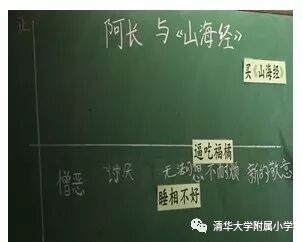 正
阿长与《山海经》
买《山海经》
逼吃福橘
憎恶 讨厌 无法可想 不耐烦 新的敬意
睡相不好
清华大学附属小学